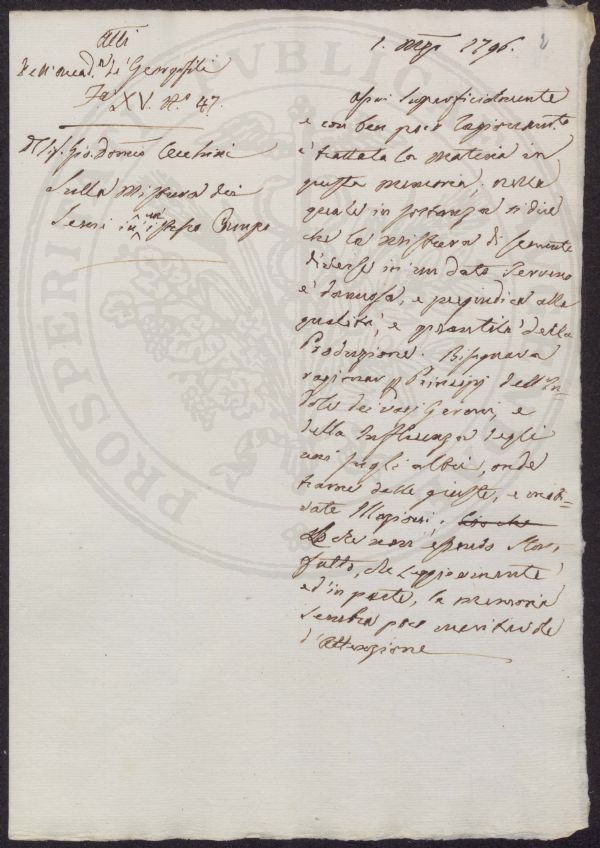 Atti
Dell'Accad.a de' Georgofili
Fa XV. N.o 47.
Del Sig. Gio. Domco Cecchini
Sulla Mistura dei
Semi in un istesso Campo
1. 1796.
Assai superficialmente
e con ben poco
è trattata la materia in
questa memoria, nella
quale in sostanza si dice
che la mistura di semente
diverse in un dato terreno
è dannosa, e pregiudica alla
qualità, e quantità della
Produzione. Bisognava
ragionar p Principj dell'In=
dole dei varj Germi, e
della Influenza degli
uni sugli altri, onde
trarne delle giuste, e
Illazioni.
Lo che non essendo stato
fatto, che leggiermente
ed in parte, la memoria
sembra poco meritevole
d'Attenzione
PROSPERITATI PUBLICAE